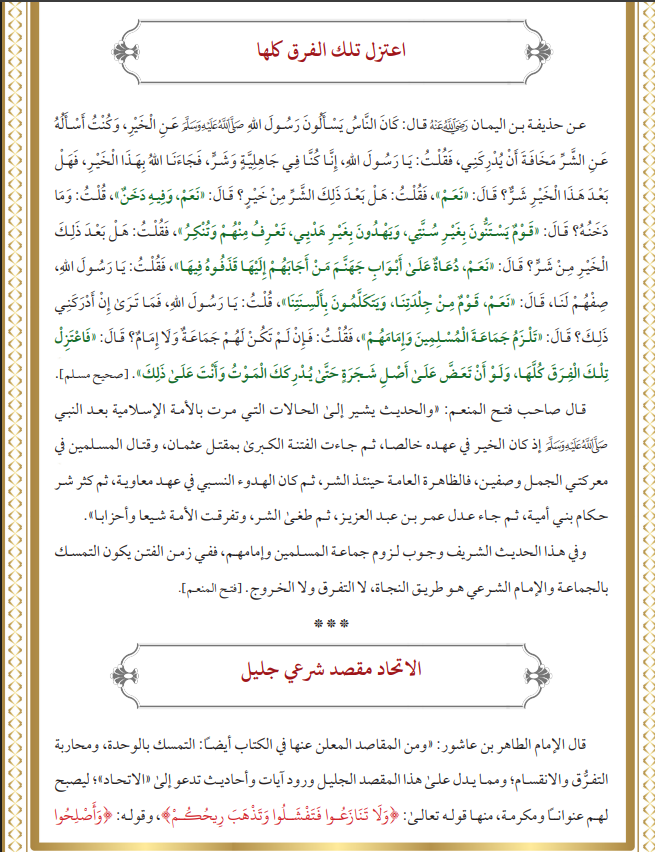 اعتزل تلك الفرق كلها
عن حذيفة بن اليمان رَضِيَ اللَّهُ عَنْهُ قال: كَانَ النَّاسُ يَسْأَلُونَ رَسُولَ اللهِ صَلَّى اللَّهُ عَلَيْهِ وَسَلَّمَ عَنِ الْخَيْرِ، وَكُنْتُ أَسْأَلُهُ
عَنِ الشَّرِّ مَخَافَةَ أَنْ يُدْرِكَنِي، فَقُلْتُ: يَا رَسُولَ اللهِ، إِنَّا كُنَّا فِي جَاهِلِيَّةٍ وَشَرٍّ، فَجَاءَنَا اللهُ بِهَذَا الْخَيْرِ، فَهَلْ
بَعْدَ هَذَا الْخَيْرِ شَرٌّ؟ قَالَ: «نَعَمْ»، فَقُلْتُ: هَلْ بَعْدَ ذَلِكَ الشَّرِّ مِنْ خَيْرٍ؟ قَالَ: «نَعَمْ، وَفِيهِ دَخَنٌ»، قُلْتُ: وَمَا
دَخَنُهُ؟ قَالَ: «قَوْمٌ يَسْتَنُّونَ بِغَيْرِ سُنَّتِي، وَيَهْدُونَ بِغَيْرِ هَدْيِي، تَعْرِفُ مِنْهُمْ وَتُنْكِرُ»، فَقُلْتُ: هَلْ بَعْدَ ذَلِكَ
الْخَيْرِ مِنْ شَرٍّ؟ قَالَ: «نَعَمْ، دُعَاةٌ عَلَىٰ أَبْوَابِ جَهَنَّمَ مَنْ أَجَابَهُمْ إِلَيْهَا قَذَفُوهُ فِيهَا»، فَقُلْتُ: يَا رَسُولَ اللهِ،
صِفْهُمْ لَنَا، قَالَ: «نَعَمْ، قَوْمٌ مِنْ جِلْدَتِنَا، وَيَتَكَلَّمُونَ بِأَلْسِنَتِنَا»، قُلْتُ: يَا رَسُولَ اللهِ، فَمَا تَرَىٰ إِنْ أَدْرَكَنِي
ذَلِكَ؟ قَالَ: «تَلْزَمُ جَمَاعَةَ الْمُسْلِمِينَ وَإِمَامَهُمْ»، فَقُلْتُ: فَإِنْ لَمْ تَكُنْ لَهُمْ جَمَاعَةٌ وَلَا إِمَامٌ؟ قَالَ: «فَاعْتَزِلْ
تِلْكَ الْفِرَقَ كُلَّهَا، وَلَوْ أَنْ تَعَضَّ عَلَىٰ أَصْلِ شَجَرَةٍ حَتَّىٰ يُدْرِكَكَ الْمَوْتُ وَأَنْتَ عَلَىٰ ذَلِكَ». [صحيح مسلم].
قال صاحب فتح المنعم: «والحديث يشير إلىٰ الحالات التي مرت بالأمة الإسلامية بعد النبي
صَلَّى اللَّهُ عَلَيْهِ وَسَلَّمَ إذ كان الخير في عهده خالصا، ثم جاءت الفتنة الكبرىٰ بمقتل عثمان، وقتال المسلمين في
معركتي الجمل وصفين، فالظاهرة العامة حينئذ الشر، ثم كان الهدوء النسبي في عهد معاوية، ثم كثر شر
حكام بني أمية، ثم جاء عدل عمر بن عبد العزيز، ثم طغىٰ الشر، وتفرقت الأمة شيعا وأحزابا».
وفي هذا الحديث الشريف وجوب لزوم جماعة المسلمين وإمامهم، ففي زمن الفتن يكون التمسك
بالجماعة والإمام الشرعي هو طريق النجاة، لا التفرق ولا الخروج. [فتح المنعم].
***
الاتحاد مقصد شرعي جليل
قال الإمام الطاهر بن عاشور: «ومن المقاصد المعلن عنها في الكتاب أيضًا: التمسك بالوحدة، ومحاربة
التفرُّق والانقسام؛ ومما يدل علىٰ هذا المقصد الجليل ورود آيات وأحاديث تدعو إلىٰ «الاتحاد»؛ ليصبح
لهم عنوانًا ومكرمة، منها قوله تعالىٰ: ﴿وَلَا تَنَازَعُوا فَتَفْشَلُوا وَتَذْهَبَ رِيحُكُمْ﴾، وقوله: ﴿وَأَصْلِحُوا